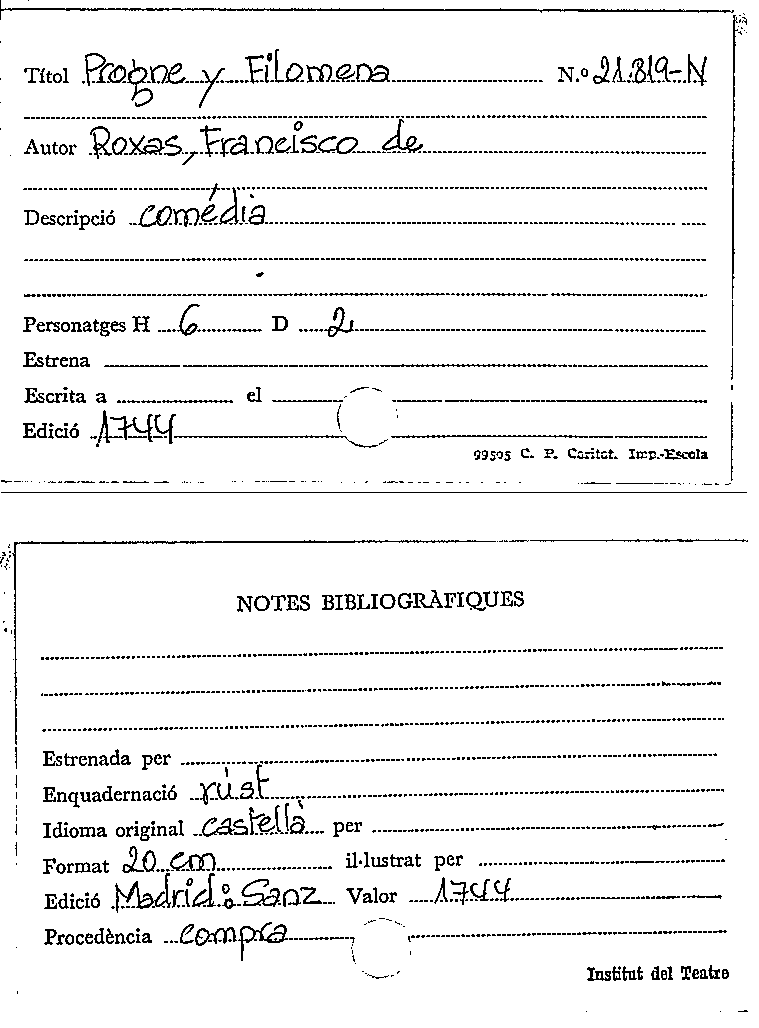 Títol Progne y Filomena N.º 21.819-N
Autor Roxas, Francisco de
Descripció comédia
Personatges H 6 D 2
Estrena
Escrita a el
Edició 1744
99505 C. P. Caritat. Imp.-Escola
NOTES BIBLIOGRÀFIQUES
Estrenada per
Enquadernació rúst
Idioma original castellà per
Format 20 cm il·lustrat per
Edició Madrid: Sanz Valor 1744
Procedència compra
Institut del Teatre